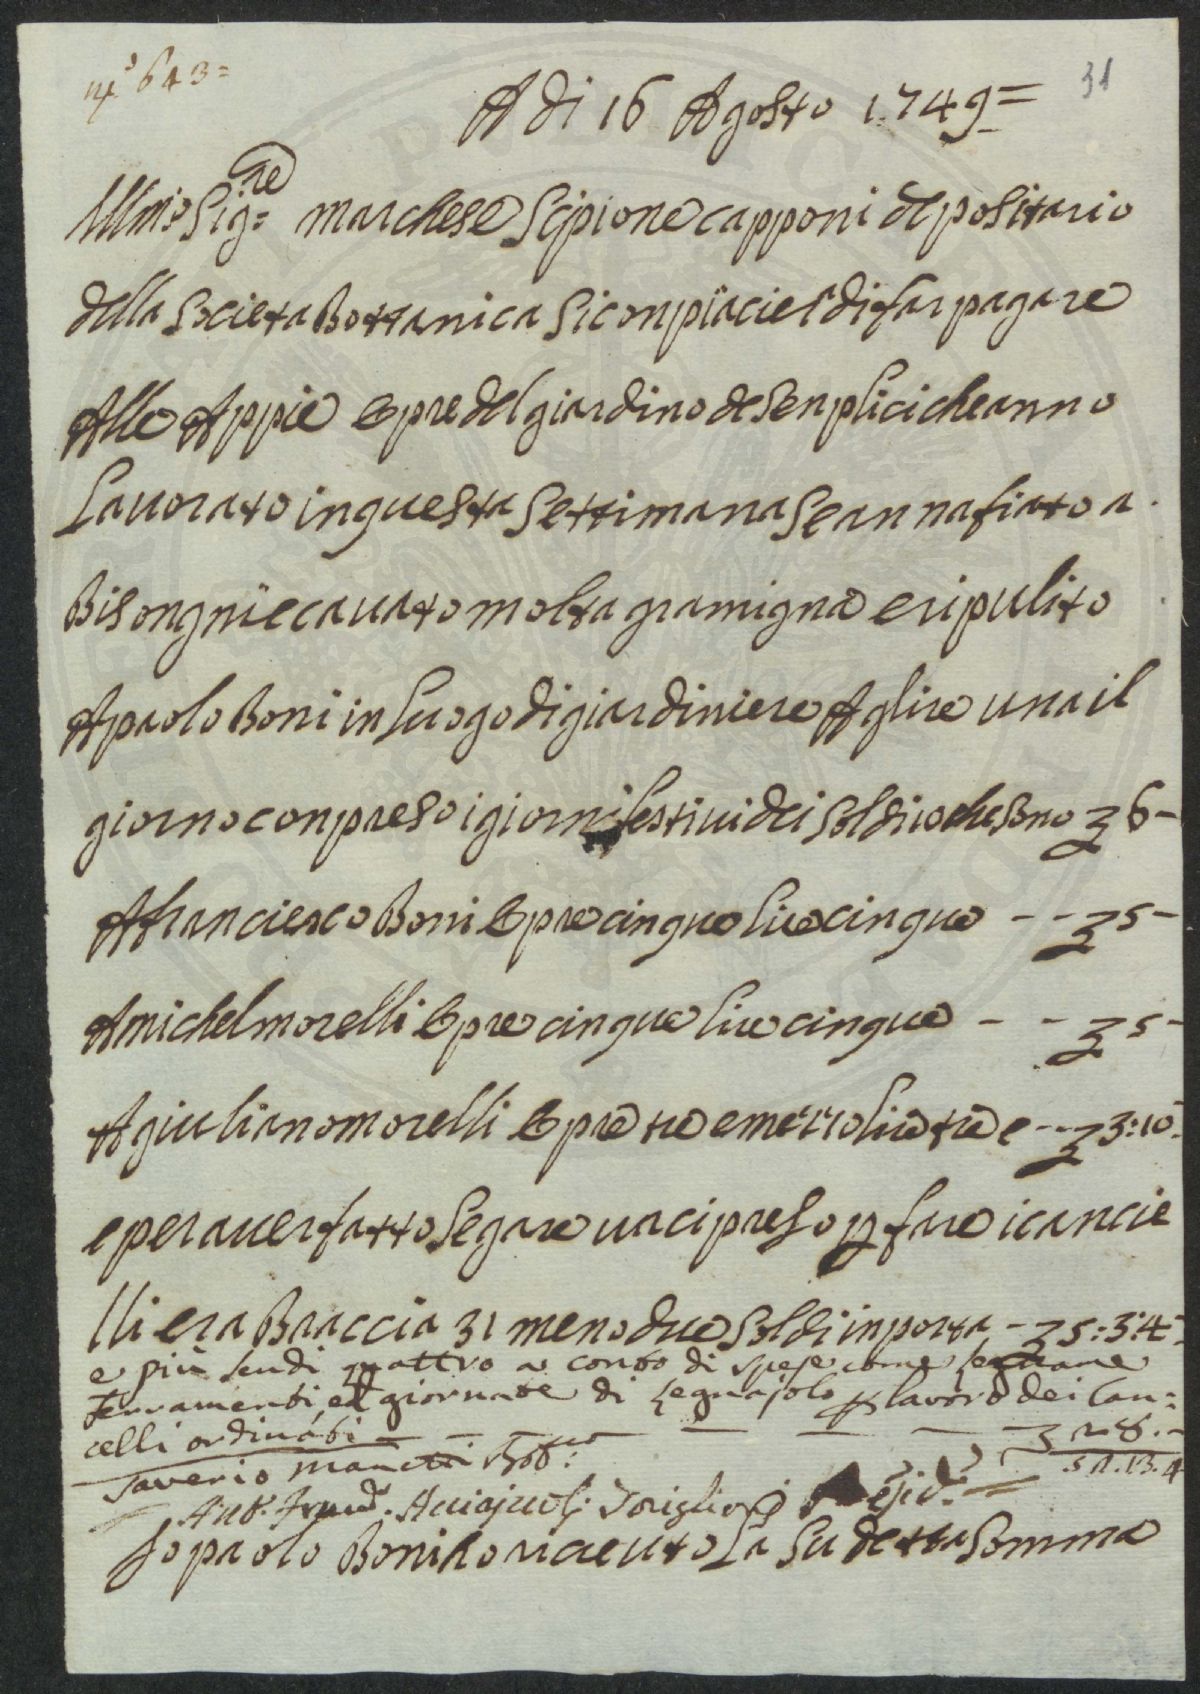 N° 643=
31
A di 16 Agosto 1749=
Illmo Sig:re marchese Scipione capponi depositario
della Societa Bottanica Si conpiacier di far pagare
Alle Appie Opre del giardino de Senplici che anno
Lauorato in questa Settimana Se annafiato a
Bisongni e cauato molta gramigna e ripulito
A paolo Boni in Luogo di giardiniere A lire una il
giorno conpreso i giorni festiui dei Soldi 10 che Sono 6-
A franciesco Boni Opre cinque lire cinque - - 5-
A michel morelli Opre cinque lire cinque - - 5-
A giuliano morelli Opre tre e mezzo lire tre e - - 3:10-
e per auer fatto Segare un cipreso p fare i cancie
lli era Braccia 31 meno due Soldi inporta - 5:3:4-
e più scudi quattro a conto di spese come
ferramenti, ed giornate di legnajolo p lavoro dei Can=
celli ordinati - - - - 28.-
Saverio Manetti
51.13.4
Io paolo Boni o riceuto La Su detta Somma